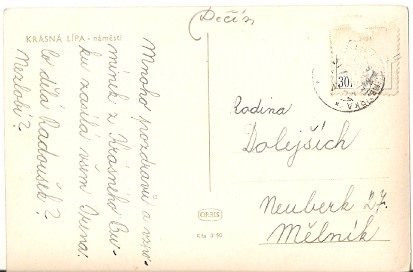 Děčín
KRÁSNÁ LÍPA - náměstí
Mnoho pozdravů a vzpo-
mínek z Krásného Bu-
ku zasílá všem Irena.
Co dělá Radoušek?
Nezlobí?
30.
Rodina
Dolejších
Neuberk 27.
Mělník
ORBIS